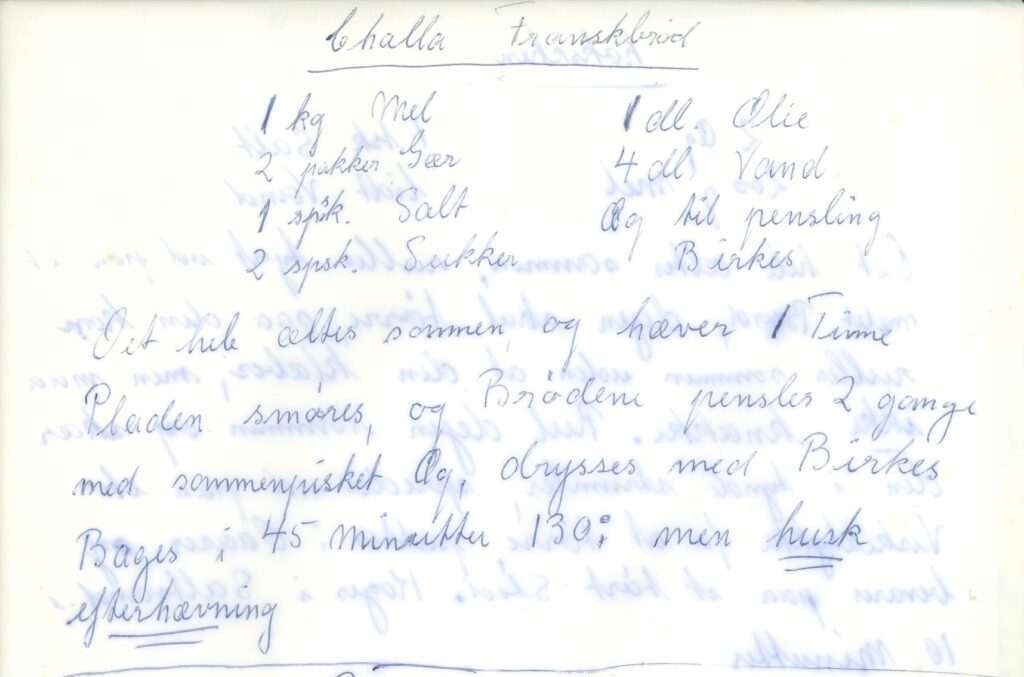 Challa Franskbrød
1 kg Mel 1 dl. Olie
2 pakker Gær 4 dl. Vand
1 spsk. Salt Æg til pensling
2 spsk. Sukker Birkes
Det hele æltes sammen, og hæver 1 Time
Pladen smøres, og Brødene pensles 2 gange
med sammenpisket Æg, drysses med Birkes
Bages i 45 Minutter 130°: men husk
efterhævning